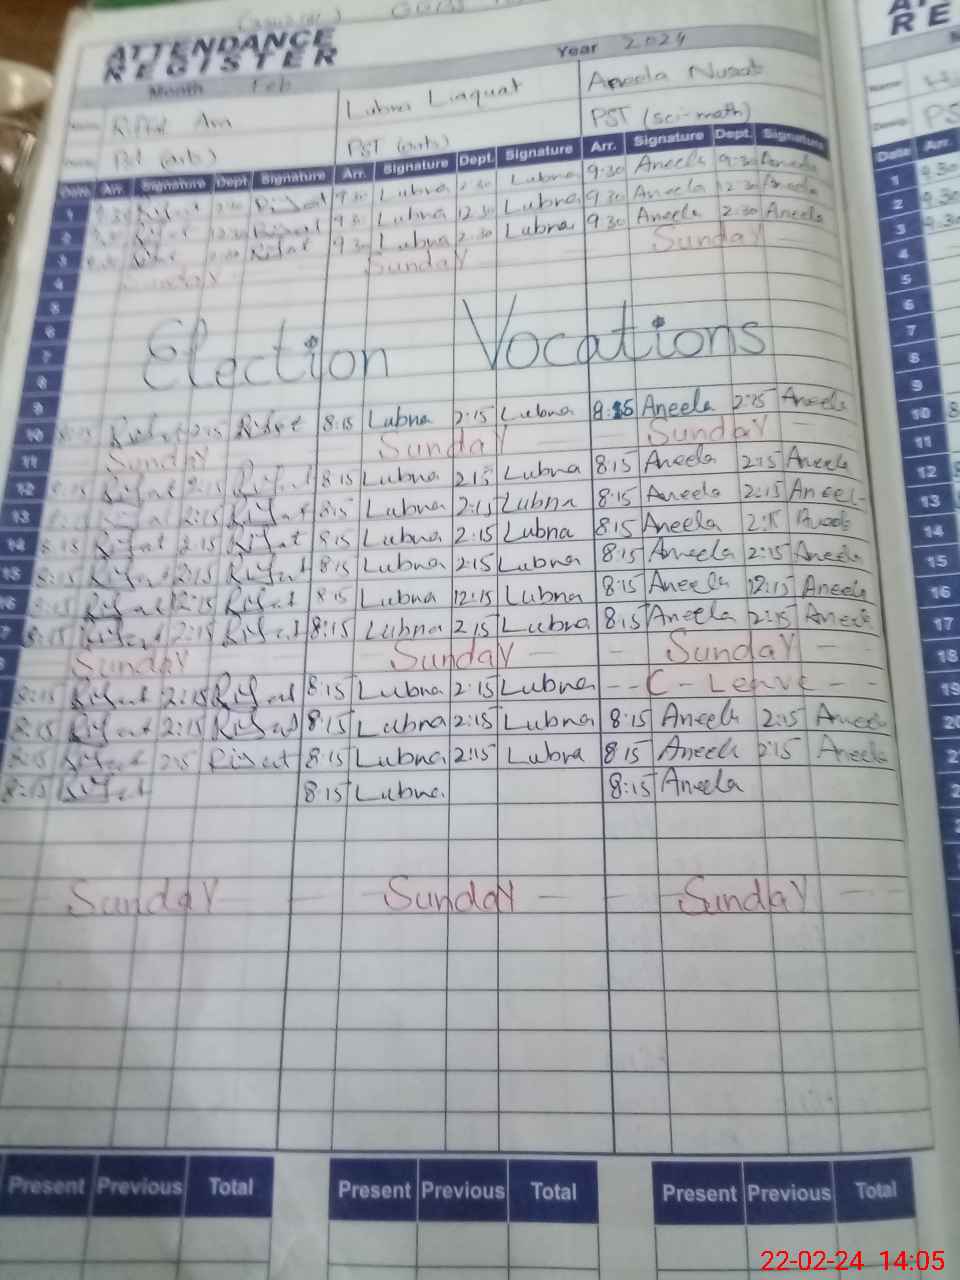 ATTENDANCE
REGISTER
Year 2024
Month Feb
Lubna Liaquat
Aneela Nusrat
PST (arts)
PST (sci-math)
Date Arr. Signature Dept Signature Arr. Signature Dept. Signature Arr. Signature Dept. Signature
1 9:30 Lubna Lubna 9:30 Aneela Aneela
2 9:30 Lubna 12:30 Lubna 9:30 Aneela 12:30 Aneela
3 9:30 Lubna 2:30 Lubna 9:30 Aneela 2:30 Aneela
4 Sunday Sunday Sunday
5
6
7
8
Election Vocations
9
10 Rifat 2:15 Rifat 8:15 Lubna 2:15 Lubna 8:15 Aneela 2:15 Aneela
11 Sunday Sunday Sunday
12 Rifat 2:15 Rifat 8:15 Lubna 2:15 Lubna 8:15 Aneela 2:15 Aneela
13 2:15 Rifat 8:15 Lubna 2:15 Lubna 8:15 Aneela 2:15 Aneel
14 8:15 Rifat 2:15 Rifat 8:15 Lubna 2:15 Lubna 8:15 Aneela 2:15
15 8:15 Rifat 2:15 Rifat 8:15 Lubna 2:15 Lubna 8:15 Aneela 2:15 Aneela
16 8:15 Rifat 12:15 Rifat 8:15 Lubna 12:15 Lubna 8:15 Aneela 12:15 Aneela
8:15 Rifat 2:15 Rifat 8:15 Lubna 2:15 Lubna 8:15 Aneela 2:15 Aneela
Sunday Sunday Sunday
8:15 Rifat 2:15 Rifat 8:15 Lubna 2:15 Lubna C-Leave
8:15 Rifat 2:15 Rifat 8:15 Lubna 2:15 Lubna 8:15 Aneela 2:15 Aneela
8:15 Rifat 2:15 Rifat 8:15 Lubna 2:15 Lubna 8:15 Aneela 2:15 Aneela
8:15 Rifat 8:15 Lubna 8:15 Aneela
Sunday Sunday Sunday
Present Previous Total Present Previous Total Present Previous Total
RE
PS
Date Arr.
1 9:30
2 9:30
3 9:30
4
5
6
7
8
9
10 8
11
12
13
14
15
16
17
18
19
20
22-02-24 14:05